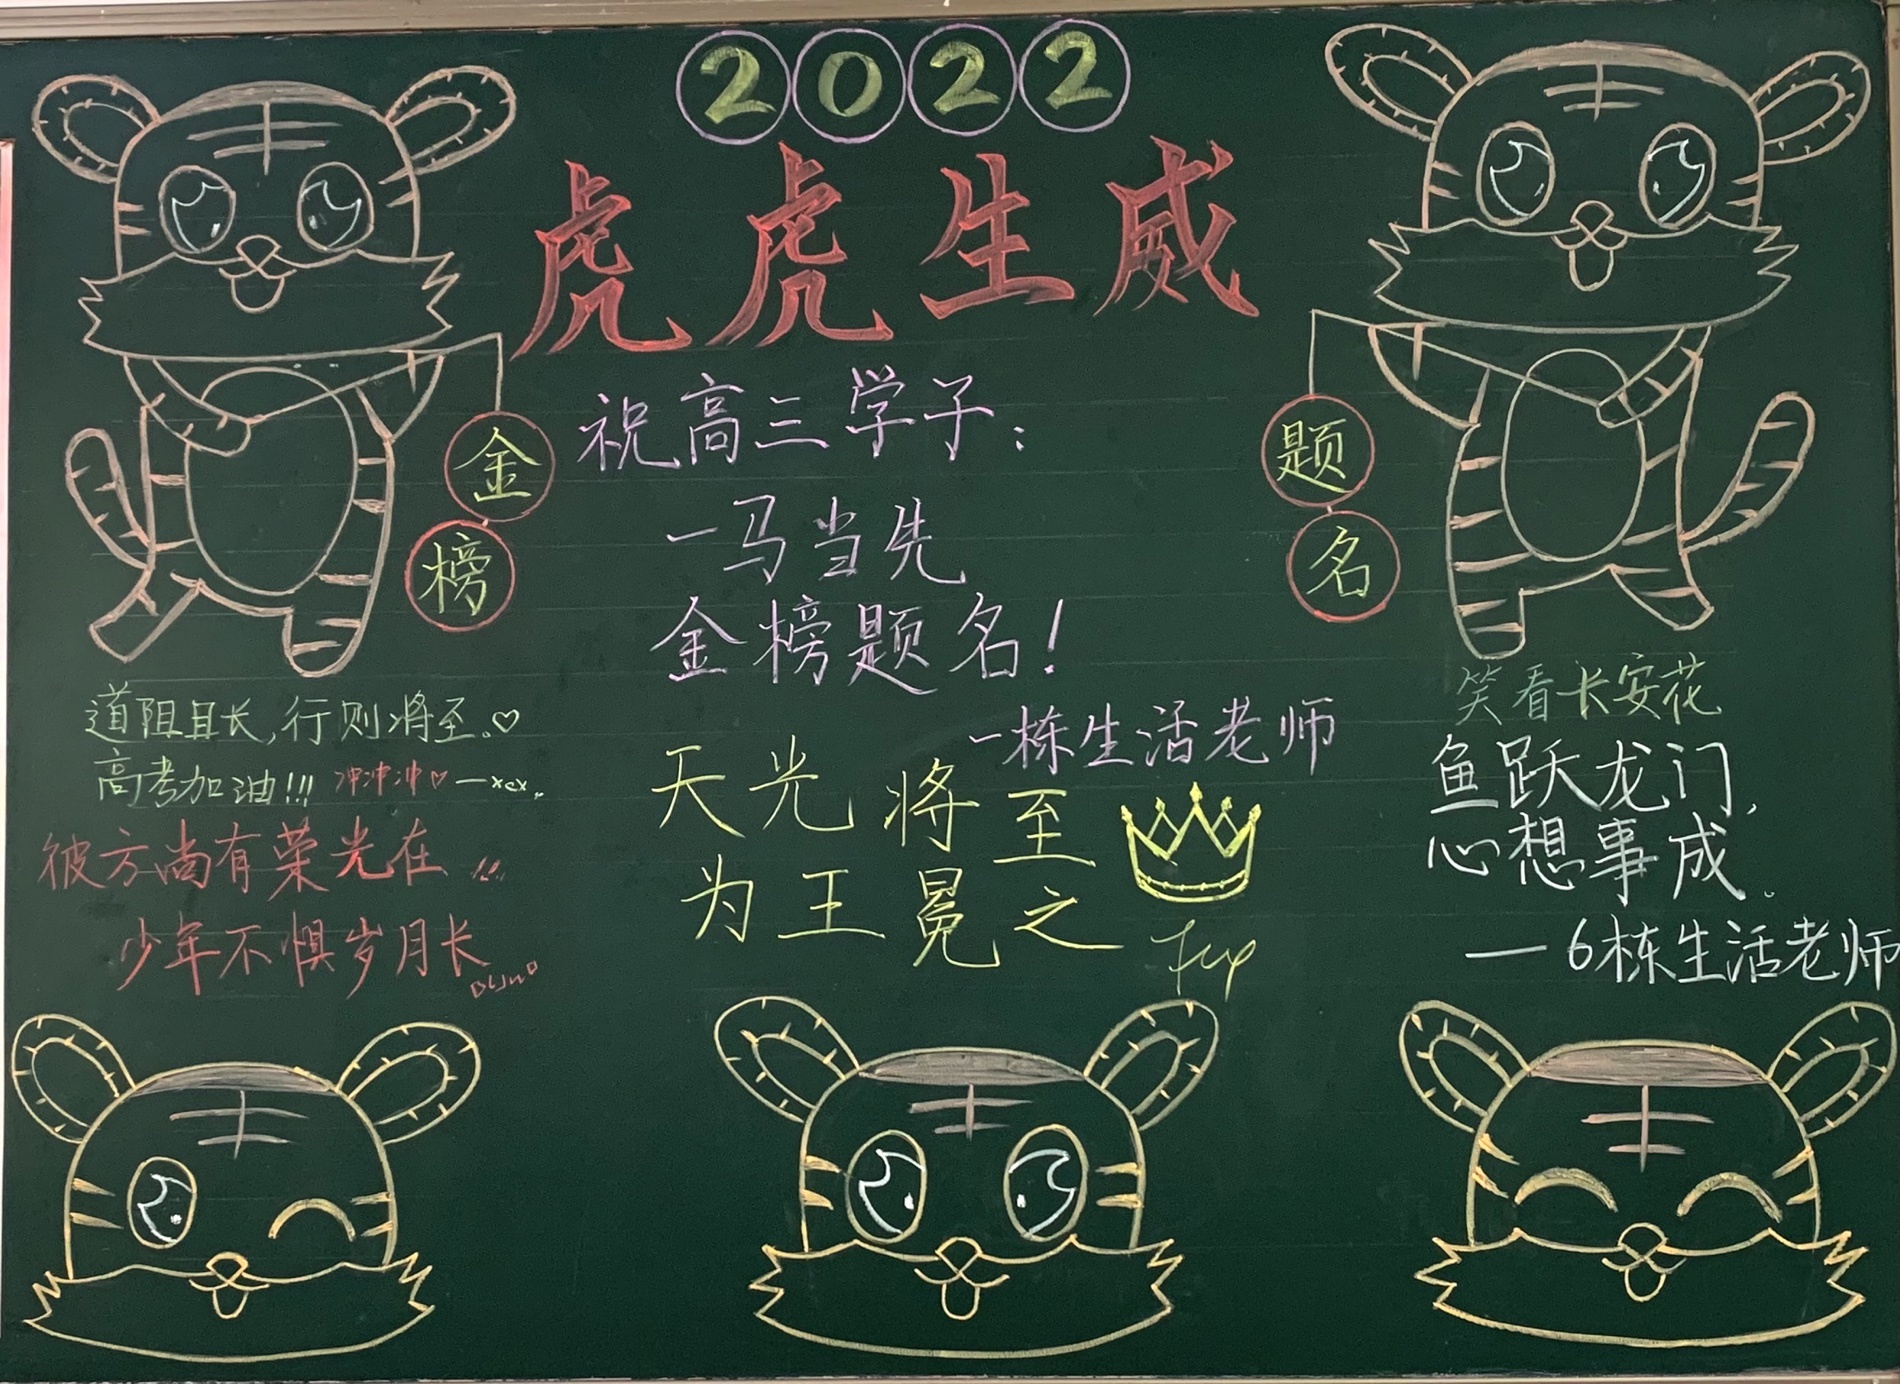 2022
虎虎生威
金榜
题名
祝高三学子：
一马当先
金榜题名！
一栋生活老师
道阻且长,行则将至。♡
高考加油!!! 冲冲冲♡ —xex。
彼方尚有荣光在!!!
少年不惧岁月长
天光将至
为王冕之
笑看长安花
鱼跃龙门,
心想事成。
—6栋生活老师